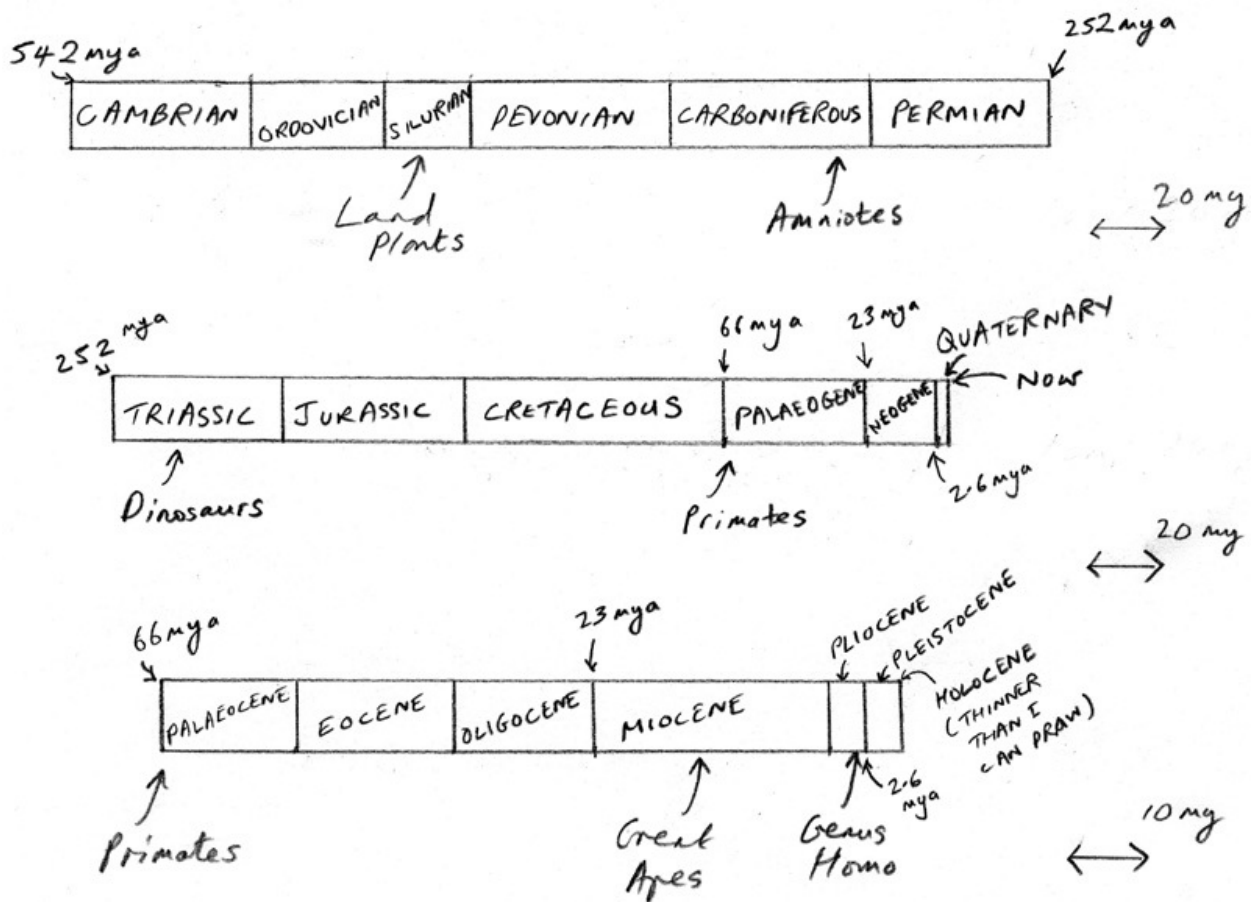 542 mya
252 mya
CAMBRIAN
ORDOVICIAN
SILURIAN
DEVONIAN
CARBONIFEROUS
PERMIAN
Land
Plants
Amniotes
20 my
252 mya
66 mya
23 mya
QUATERNARY
NOW
TRIASSIC
JURASSIC
CRETACEOUS
PALAEOGENE
NEOGENE
2.6 mya
Dinosaurs
Primates
20 my
66 mya
23 mya
PLIOCENE
PLEISTOCENE
HOLOCENE
(THINNER
THAN I
CAN DRAW)
PALAEOCENE
EOCENE
OLIGOCENE
MIOCENE
2.6
mya
Primates
Great
Apes
Genus
Homo
10 my